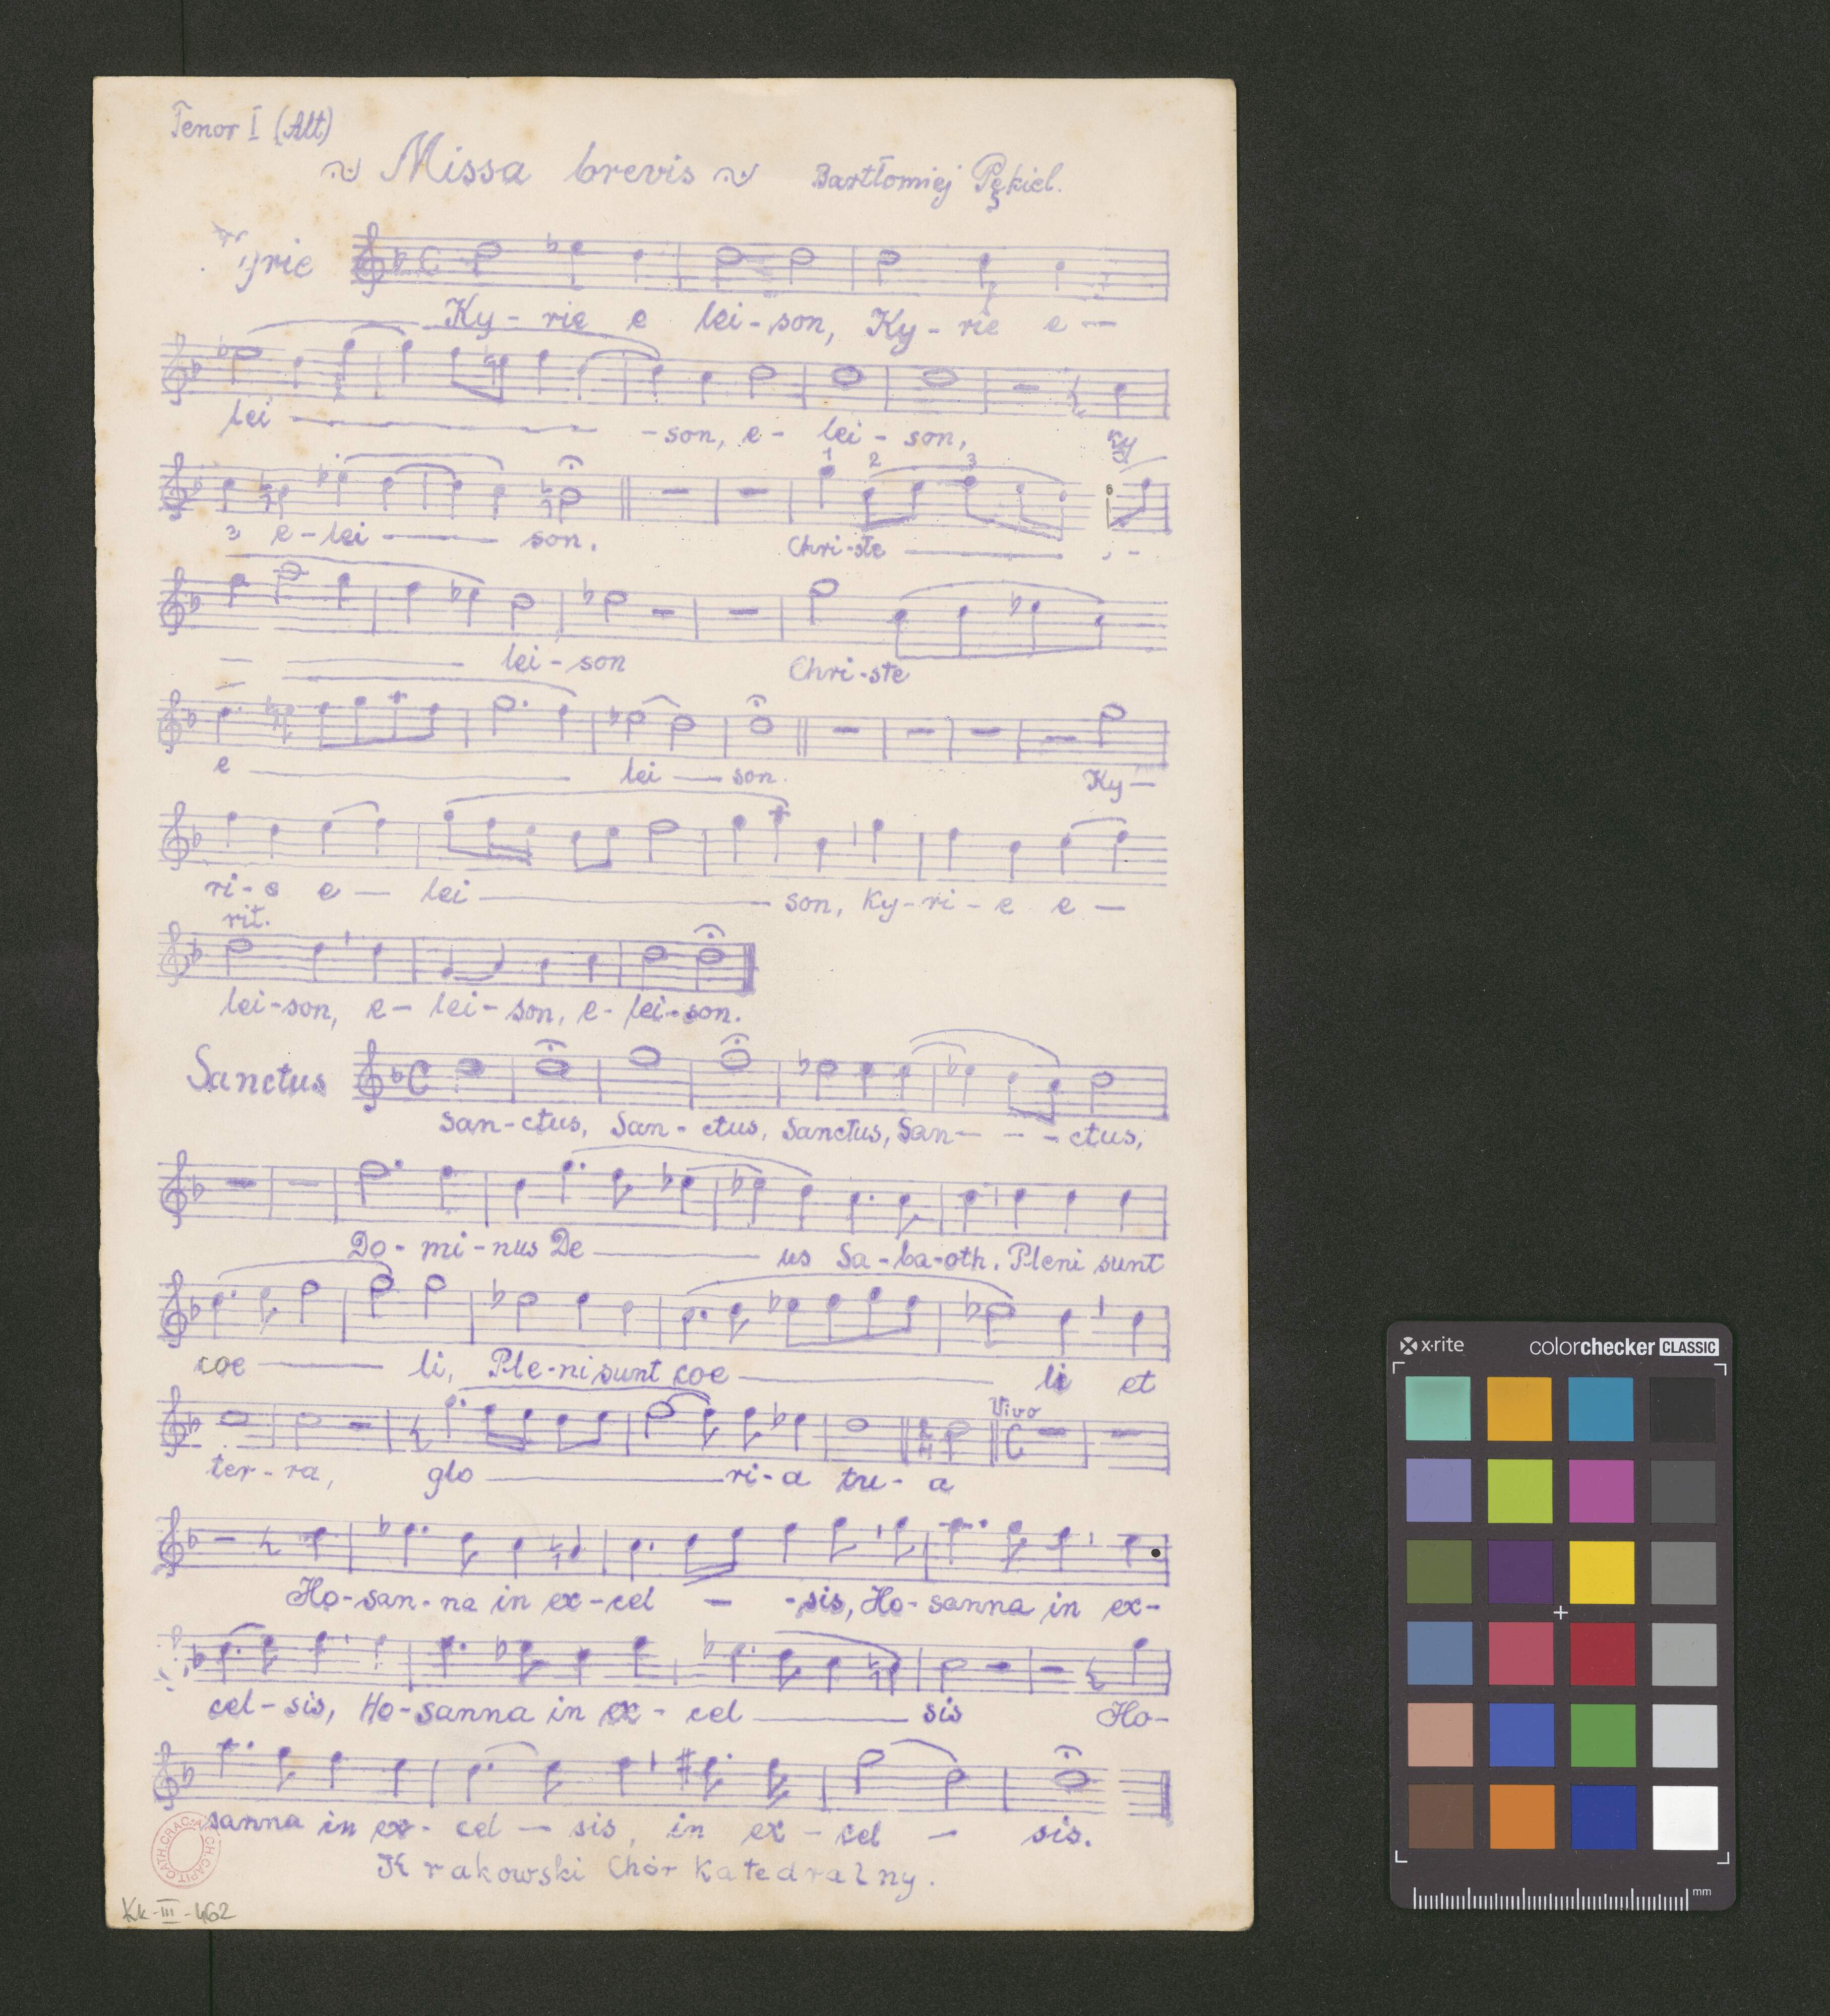 Tenor I (Alt)
~ Missa brevis ~ Bartłomiej Pękiel.
Kyrie
Ky - rie e lei - son, Ky - rie e —
lei — - son, e - lei - son, Ky
1 2 3
e - lei — son. Chri - ste —
lei - son Chri - ste
e — lei — son. Ky —
ri - e e — lei — son, Ky - ri - e e —
rit.
lei - son, e - lei - son, e - lei - son.
Sanctus
San - ctus, San - ctus, Sanctus, San - - - ctus,
Do - mi - nus De — us Sa - ba - oth. Pleni sunt
coe — li, Ple - ni sunt coe — li et
Vivo
ter - ra, glo — ri - a tu - a
Ho - san - na in ex - cel — - sis, Ho - sanna in ex -
cel - sis, Ho - sanna in ex - cel — sis Ho -
sanna in ex - cel — sis, in ex - cel — sis.
Krakowski Chór Katedralny.
Kk-III-462
x·rite colorchecker CLASSIC
mm